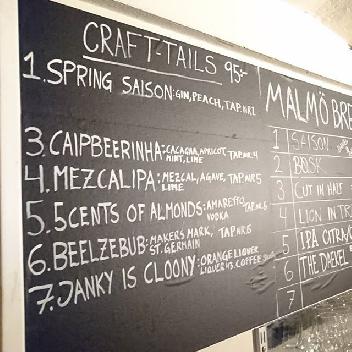 CRAFT-TAILS 95:-
1. SPRING SAISON: GIN, PEACH, TAP NR 1
3. CAIPBEERINHA: CACHACA, APRICOT, TAP NR. 4
MINT, LIME
4. MEZCALIPA: MEZCAL, AGAVE, TAP NR 5
LIME
5. 5CENTS OF ALMONDS: AMARETTO, TAP NR. 6
VODKA
6. BEELZEBUB: MAKERS MARK, TAP NR 8
ST. GERMAIN
7. JANKY IS CLOONY: ORANGE LIQUER
LIQUER 43, COFFEE
MALMÖ BRE
1 SAISON
2 BOSK
3 CUT IN HALF
4 LION IN TR
5 IPA CITRA/
6 THE DAEKEL
7